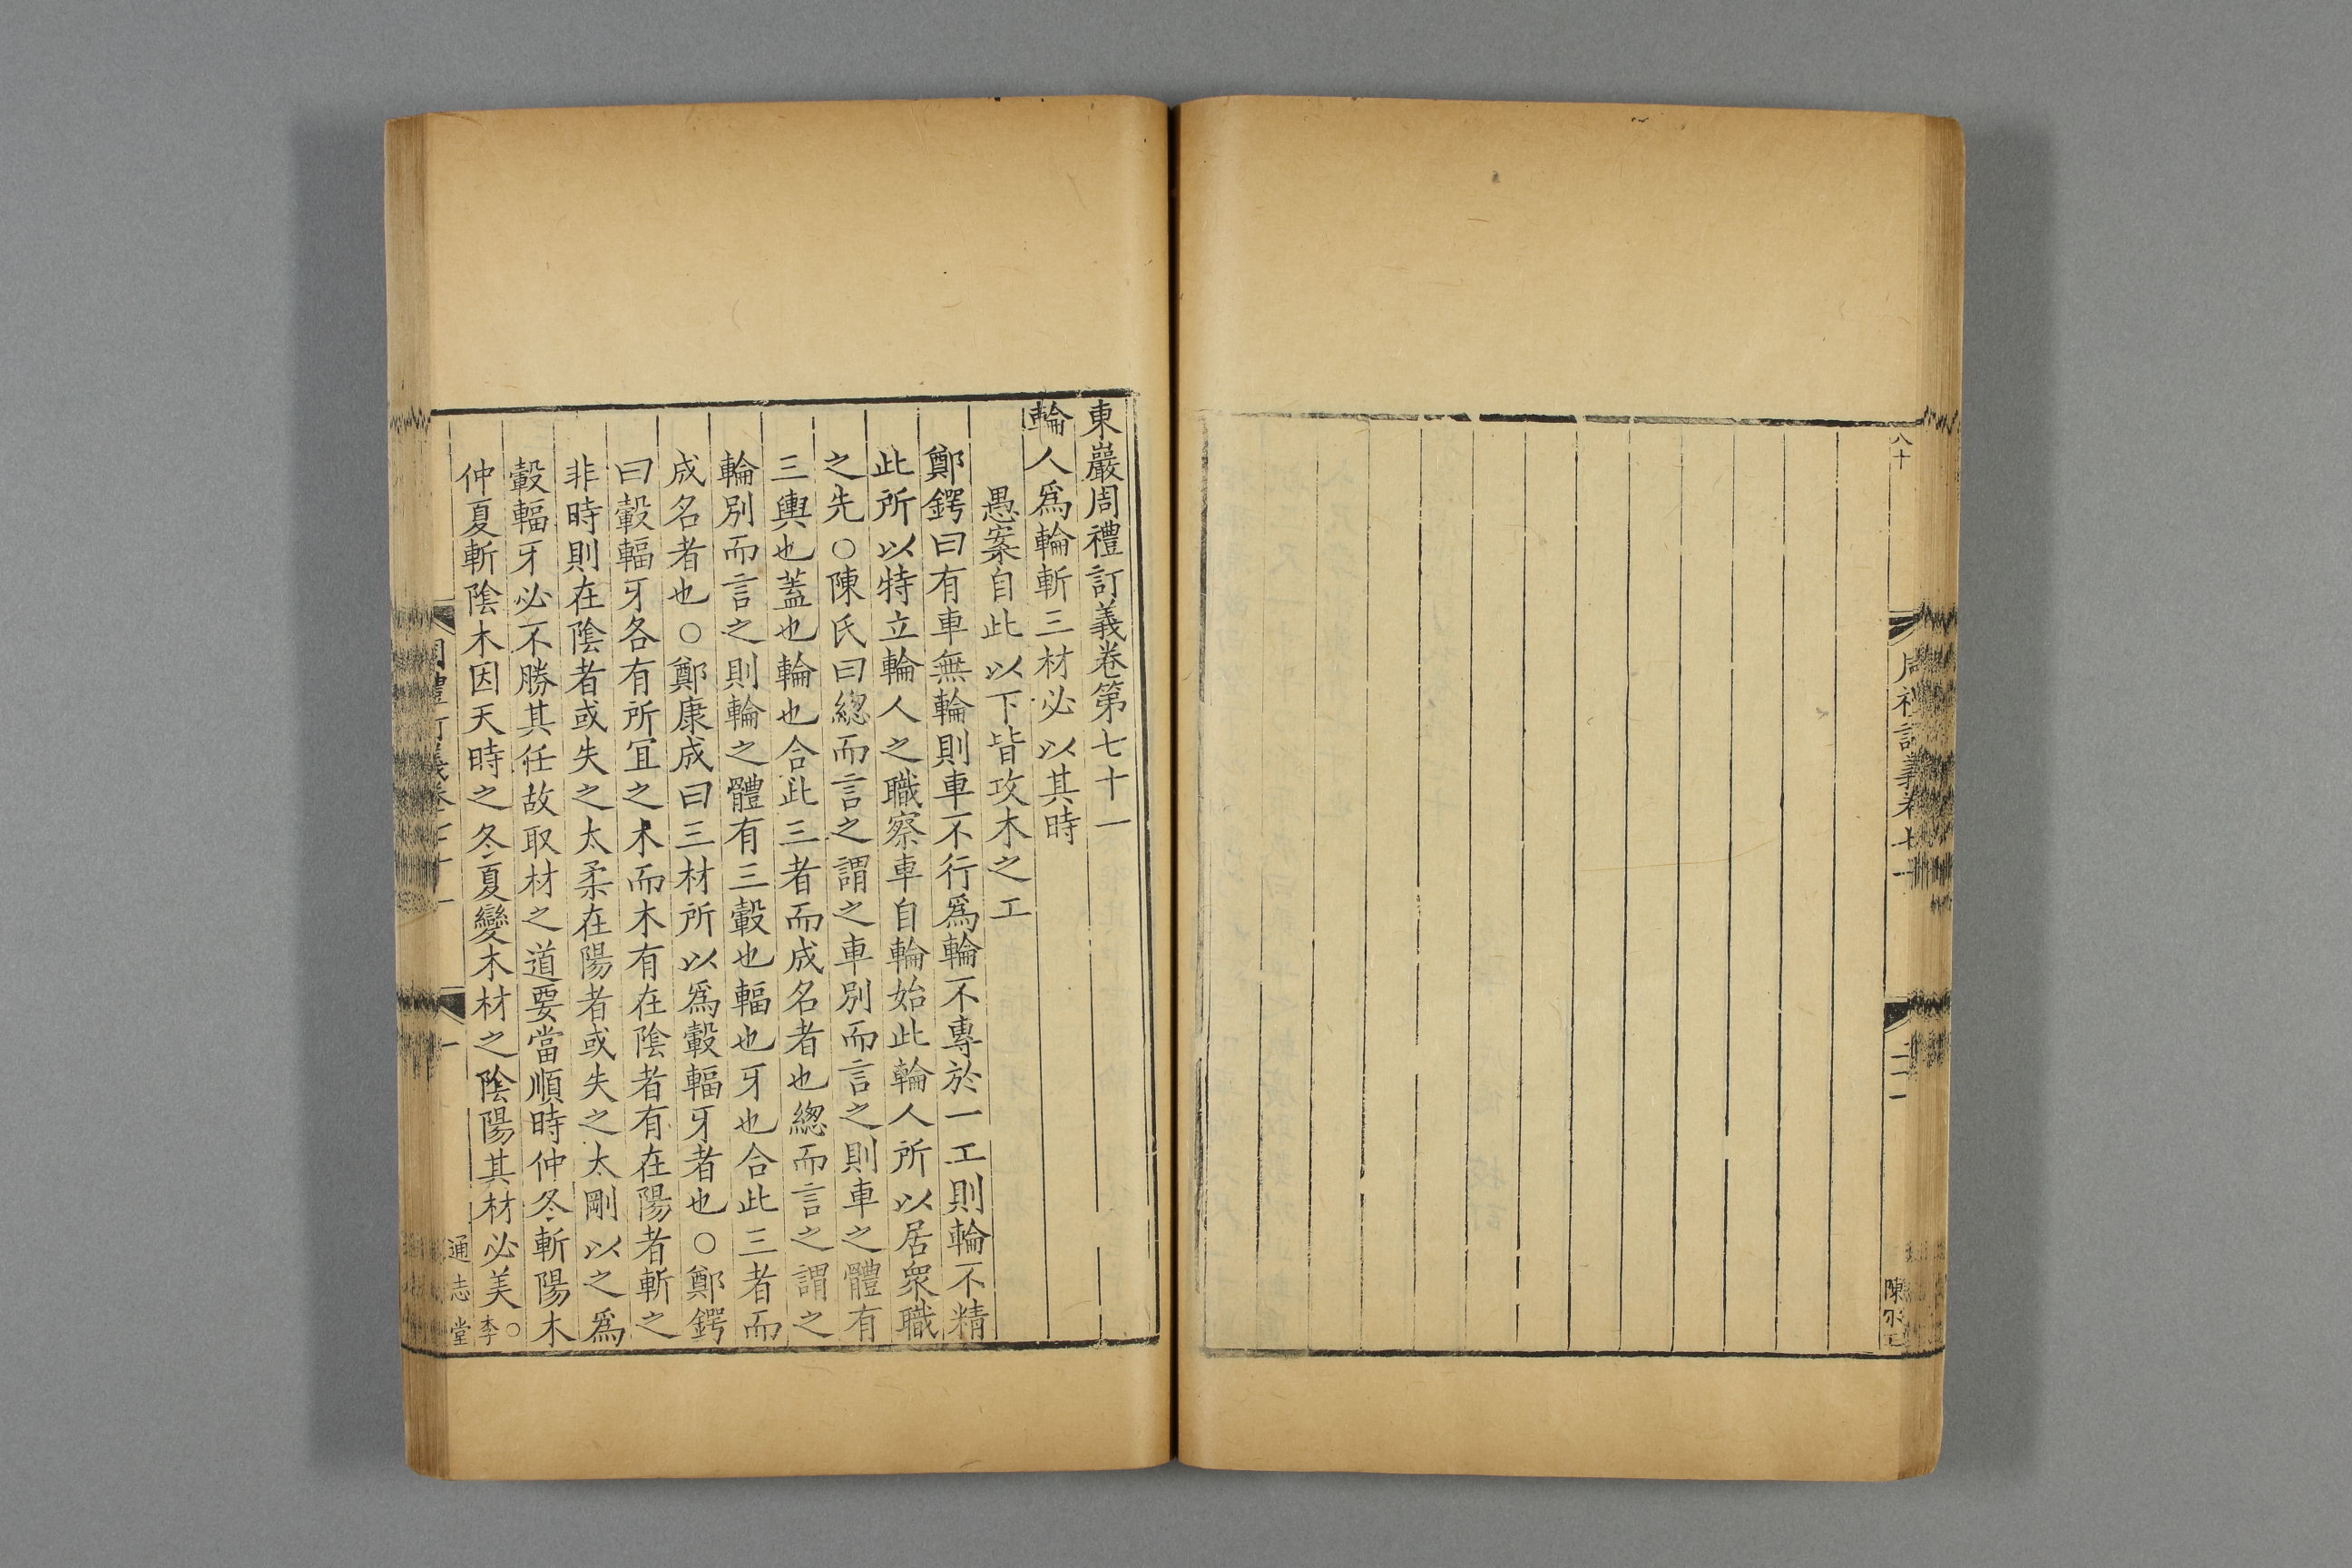 八十
周禮訂義卷七十一
東巖周禮訂義卷第七十一
輪人爲輪斬三材必以其時
愚案自此以下皆攻木之工
鄭鍔曰有車無輪則車不行爲輪不專於一工則輪不精
此所以特立輪人之職察車自輪始此輪人所以居衆職
之先○陳氏曰總而言之謂之車別而言之則車之體有
三輿也蓋也輪也合此三者而成名者也總而言之謂之
輪別而言之則輪之體有三轂也輻也牙也合此三者而
成名者也○鄭康成曰三材所以爲轂輻牙者也○鄭鍔
曰轂輻牙各有所宜之木而木有在陰者有在陽者斬之
非時則在陰者或失之太柔在陽者或失之太剛以之爲
轂輻牙必不勝其任故取材之道要當順時仲冬斬陽木
仲夏斬陰木因天時之冬夏變木材之陰陽其材必美○李
周禮訂義卷七十一
一
通志堂